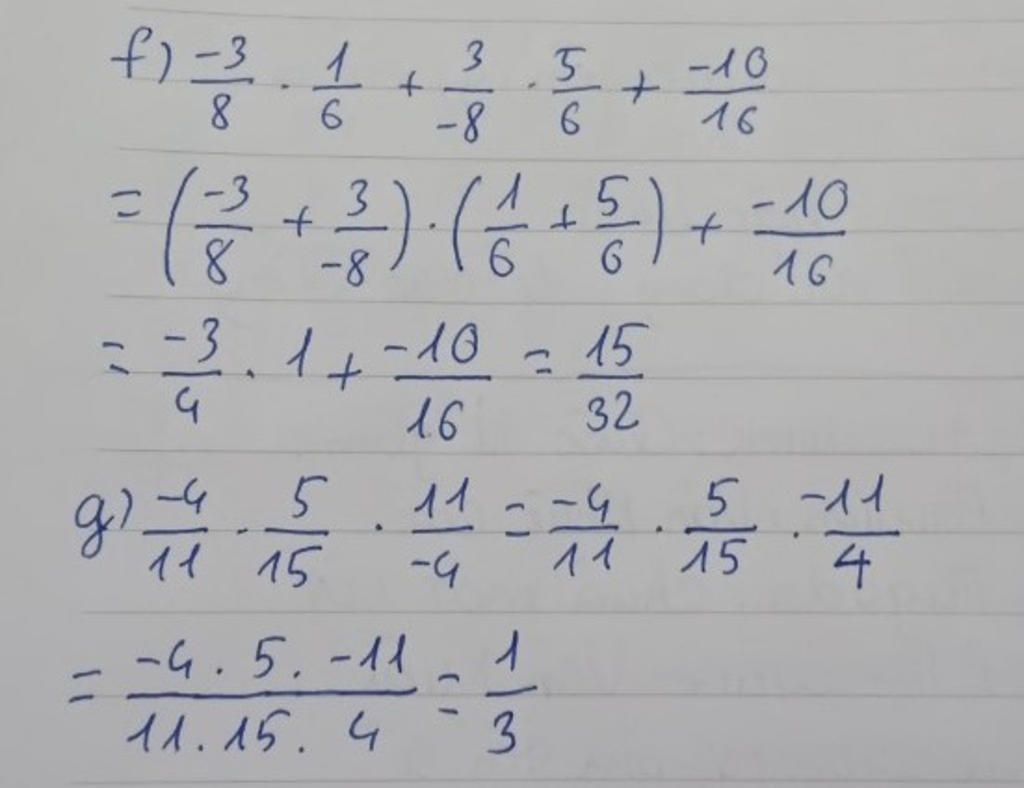 f) -3/8 . 1/6 + 3/-8 . 5/6 + -10/16
= (-3/8 + 3/-8) . (1/6 + 5/6) + -10/16
= -3/4 . 1 + -10/16 = 15/32
g) -4/11 . 5/15 . 11/-4 = -4/11 . 5/15 . -11/4
= -4 . 5 . -11/11 . 15 . 4 = 1/3